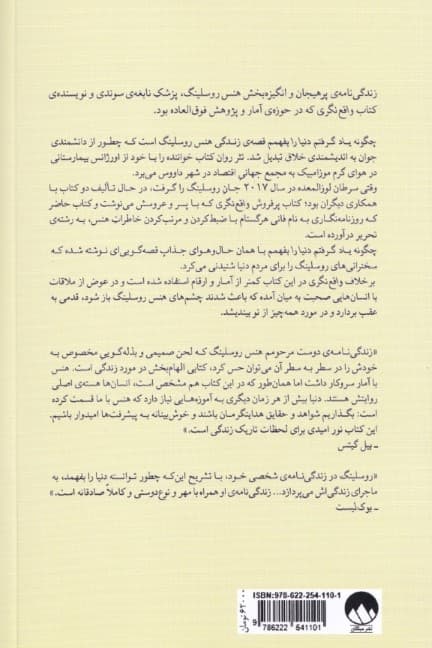 زندگی‌نامه‌ی پرهیجان و انگیزه‌بخش هنس روسلینگ، پزشکِ نابغه‌ی سوئدی و نویسنده‌ی
کتاب واقع‌نگری که در حوزه‌ی آمار و پژوهش فوق‌العاده بود.
چگونه یاد گرفتم دنیا را بفهمم قصه‌ی زندگی هنس روسلینگ است که چطور از دانشمندی
جوان به اندیشمندی خلاق تبدیل شد. نثر روان کتاب خواننده را با خود از اورژانس بیمارستانی
در هوای گرم موزامبیک به مجمع جهانی اقتصاد در شهر داووس می‌برد.
وقتی سرطان لوزالمعده در سال ۲۰۱۷ جان روسلینگ را گرفت، در حال تألیف دو کتاب با
همکاری دیگران بود؛ کتاب پرفروش واقع‌نگری که با پسر و عروسش می‌نوشت و کتاب حاضر
که روزنامه‌نگاری به نام فانی هرگستام با ضبط‌کردن و مرتب‌کردن خاطراتِ هنس، به رشته‌ی
تحریر درآورده است.
چگونه یاد گرفتم دنیا را بفهمم با همان حال‌وهوای جذاب قصه‌گویی‌ای نوشته شده که
سخنرانی‌های روسلینگ را برای مردم دنیا شنیدنی می‌کرد.
برخلاف واقع‌نگری در این کتاب کمتر از آمار و ارقام استفاده شده است و در عوض از ملاقات
با انسان‌هایی صحبت به میان آمده که باعث شدند چشم‌های هنس روسلینگ باز شود، قدمی به
عقب بردارد و در مورد همه‌چیز از نو بیندیشد.
«زندگی‌نامه‌ی دوست مرحومم هنس روسلینگ که لحن صمیمی و بذله‌گویی مخصوص به
خودش را در سطر به سطر آن می‌توان حس کرد، کتابی الهام‌بخش در مورد زندگی است. هنس
با آمار سروکار داشت اما همان‌طور که در این کتاب هم مشخص است، انسان‌ها هسته‌ی اصلی
روایتش هستند. دنیا بیش از هر زمان دیگری به آموزه‌هایی نیاز دارد که هنس با ما قسمت کرده
است: بگذاریم شواهد و حقایق هدایتگرمان باشند و خوش‌بینانه به پیشرفت‌ها امیدوار باشیم.
این کتاب نور امیدی برای لحظات تاریک زندگی است.»
ــ بیل گیتس
«روسلینگ در زندگی‌نامه‌ی شخصی خود، با تشریح این‌که چطور توانسته دنیا را بفهمد، به
ماجرای زندگی‌اش می‌پردازد... زندگی‌نامه‌ی او همراه با مهر و نوع‌دوستی و کاملاً صادقانه است.»
ــ بوک‌لیست
ISBN: 978-622-254-110-1
9 786222 541101
۶۲۰۰۰ تومان
نشر میلکان